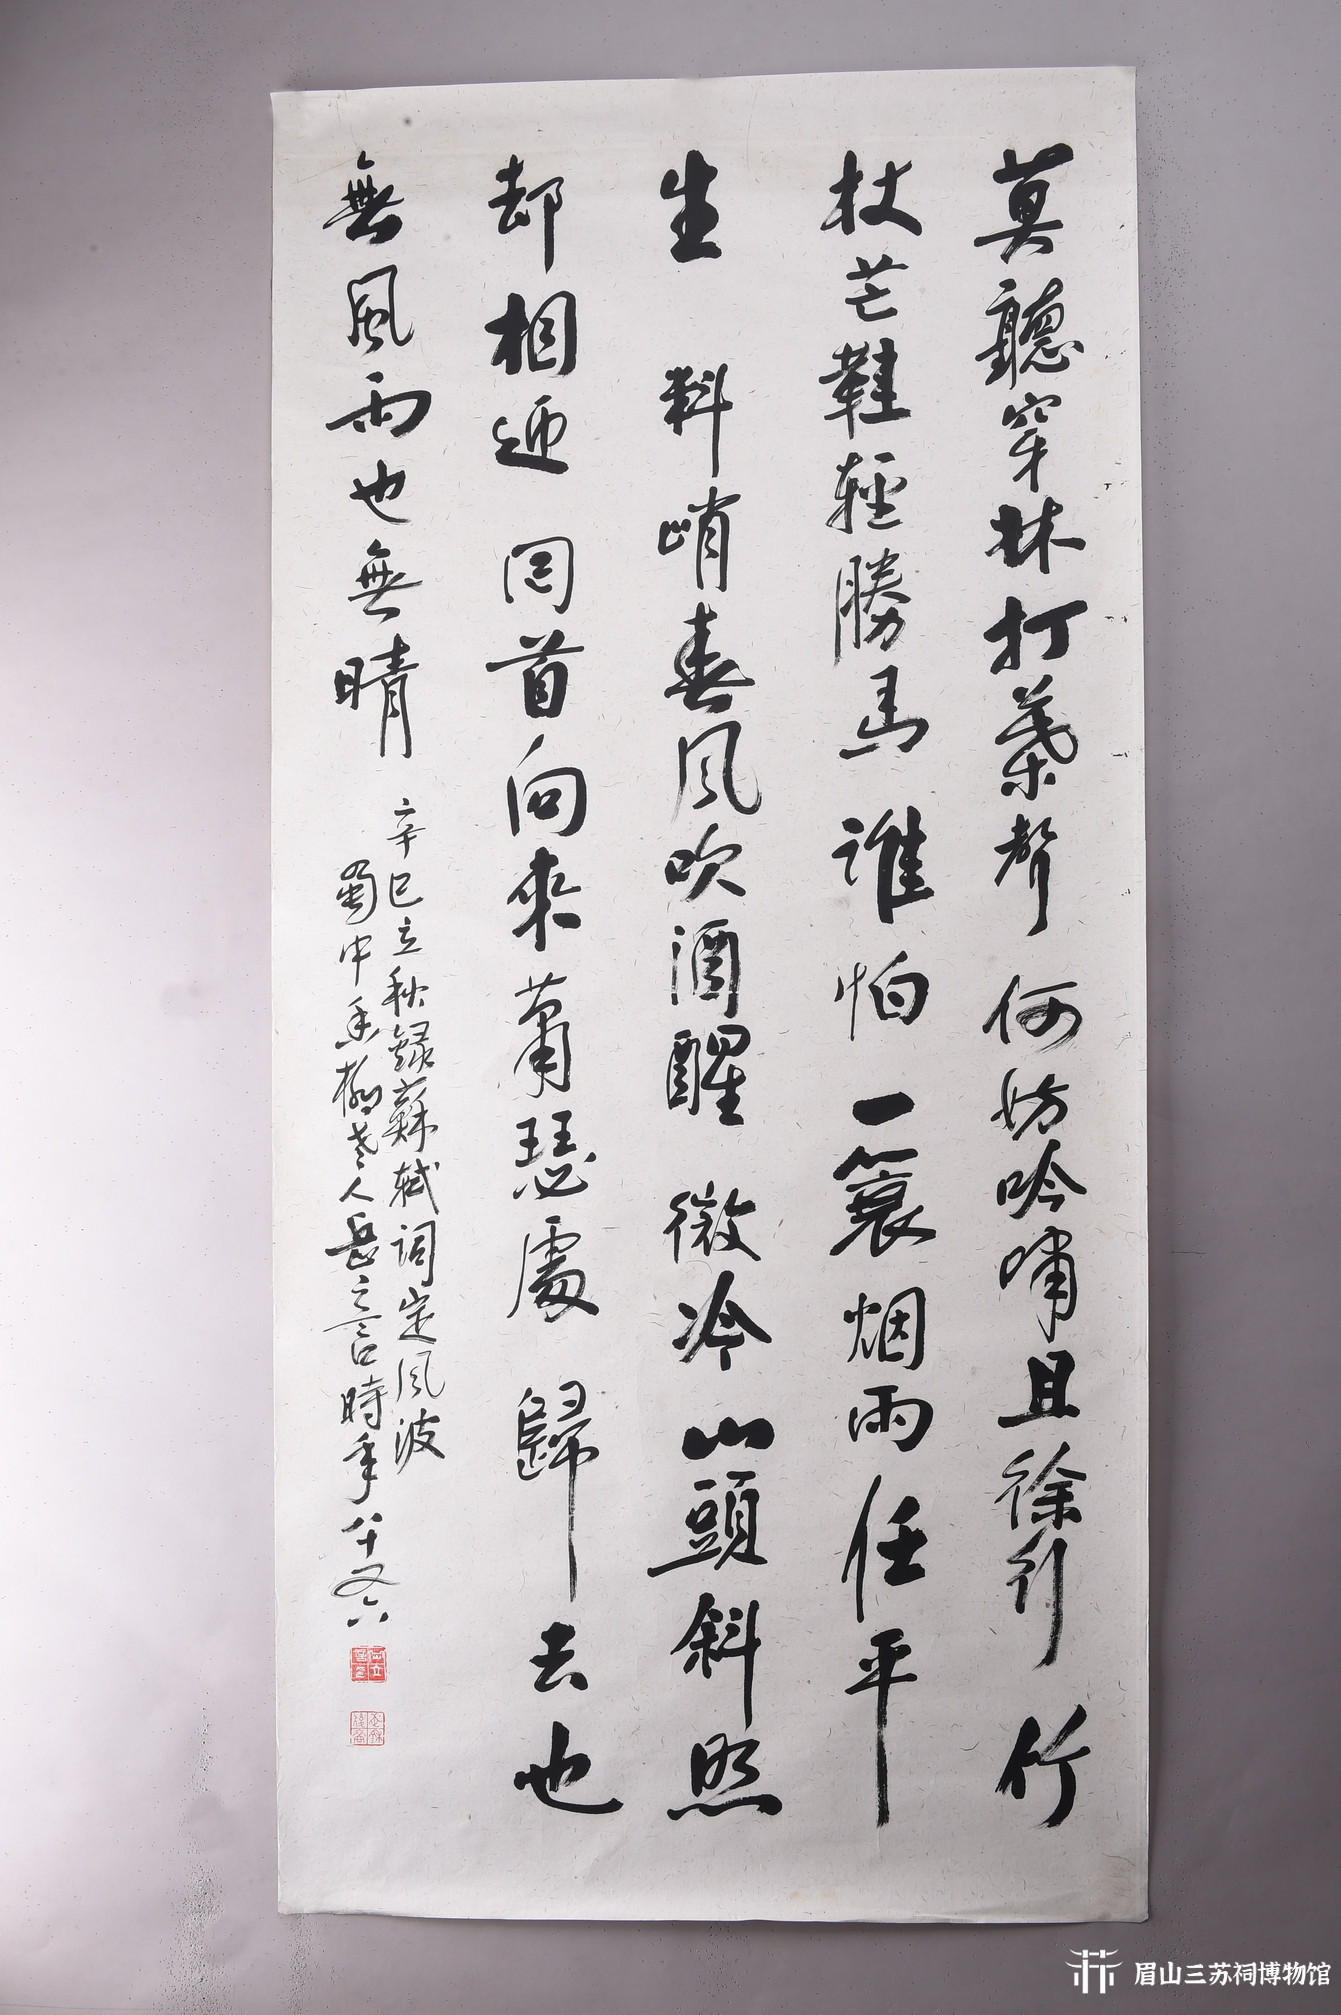 莫聽穿林打葉聲 何妨吟嘯且徐行 竹
杖芒鞋輕勝馬 誰怕 一蓑烟雨任平
生 料峭春風吹酒醒 微冷 山頭斜照
却相迎 囘首向來蕭瑟處 歸去也
無風雨也無晴
辛巳立秋錄蘇軾詞定風波
蜀中柳老人岳之言時年八十又六
武穆後裔
眉山三苏祠博物馆